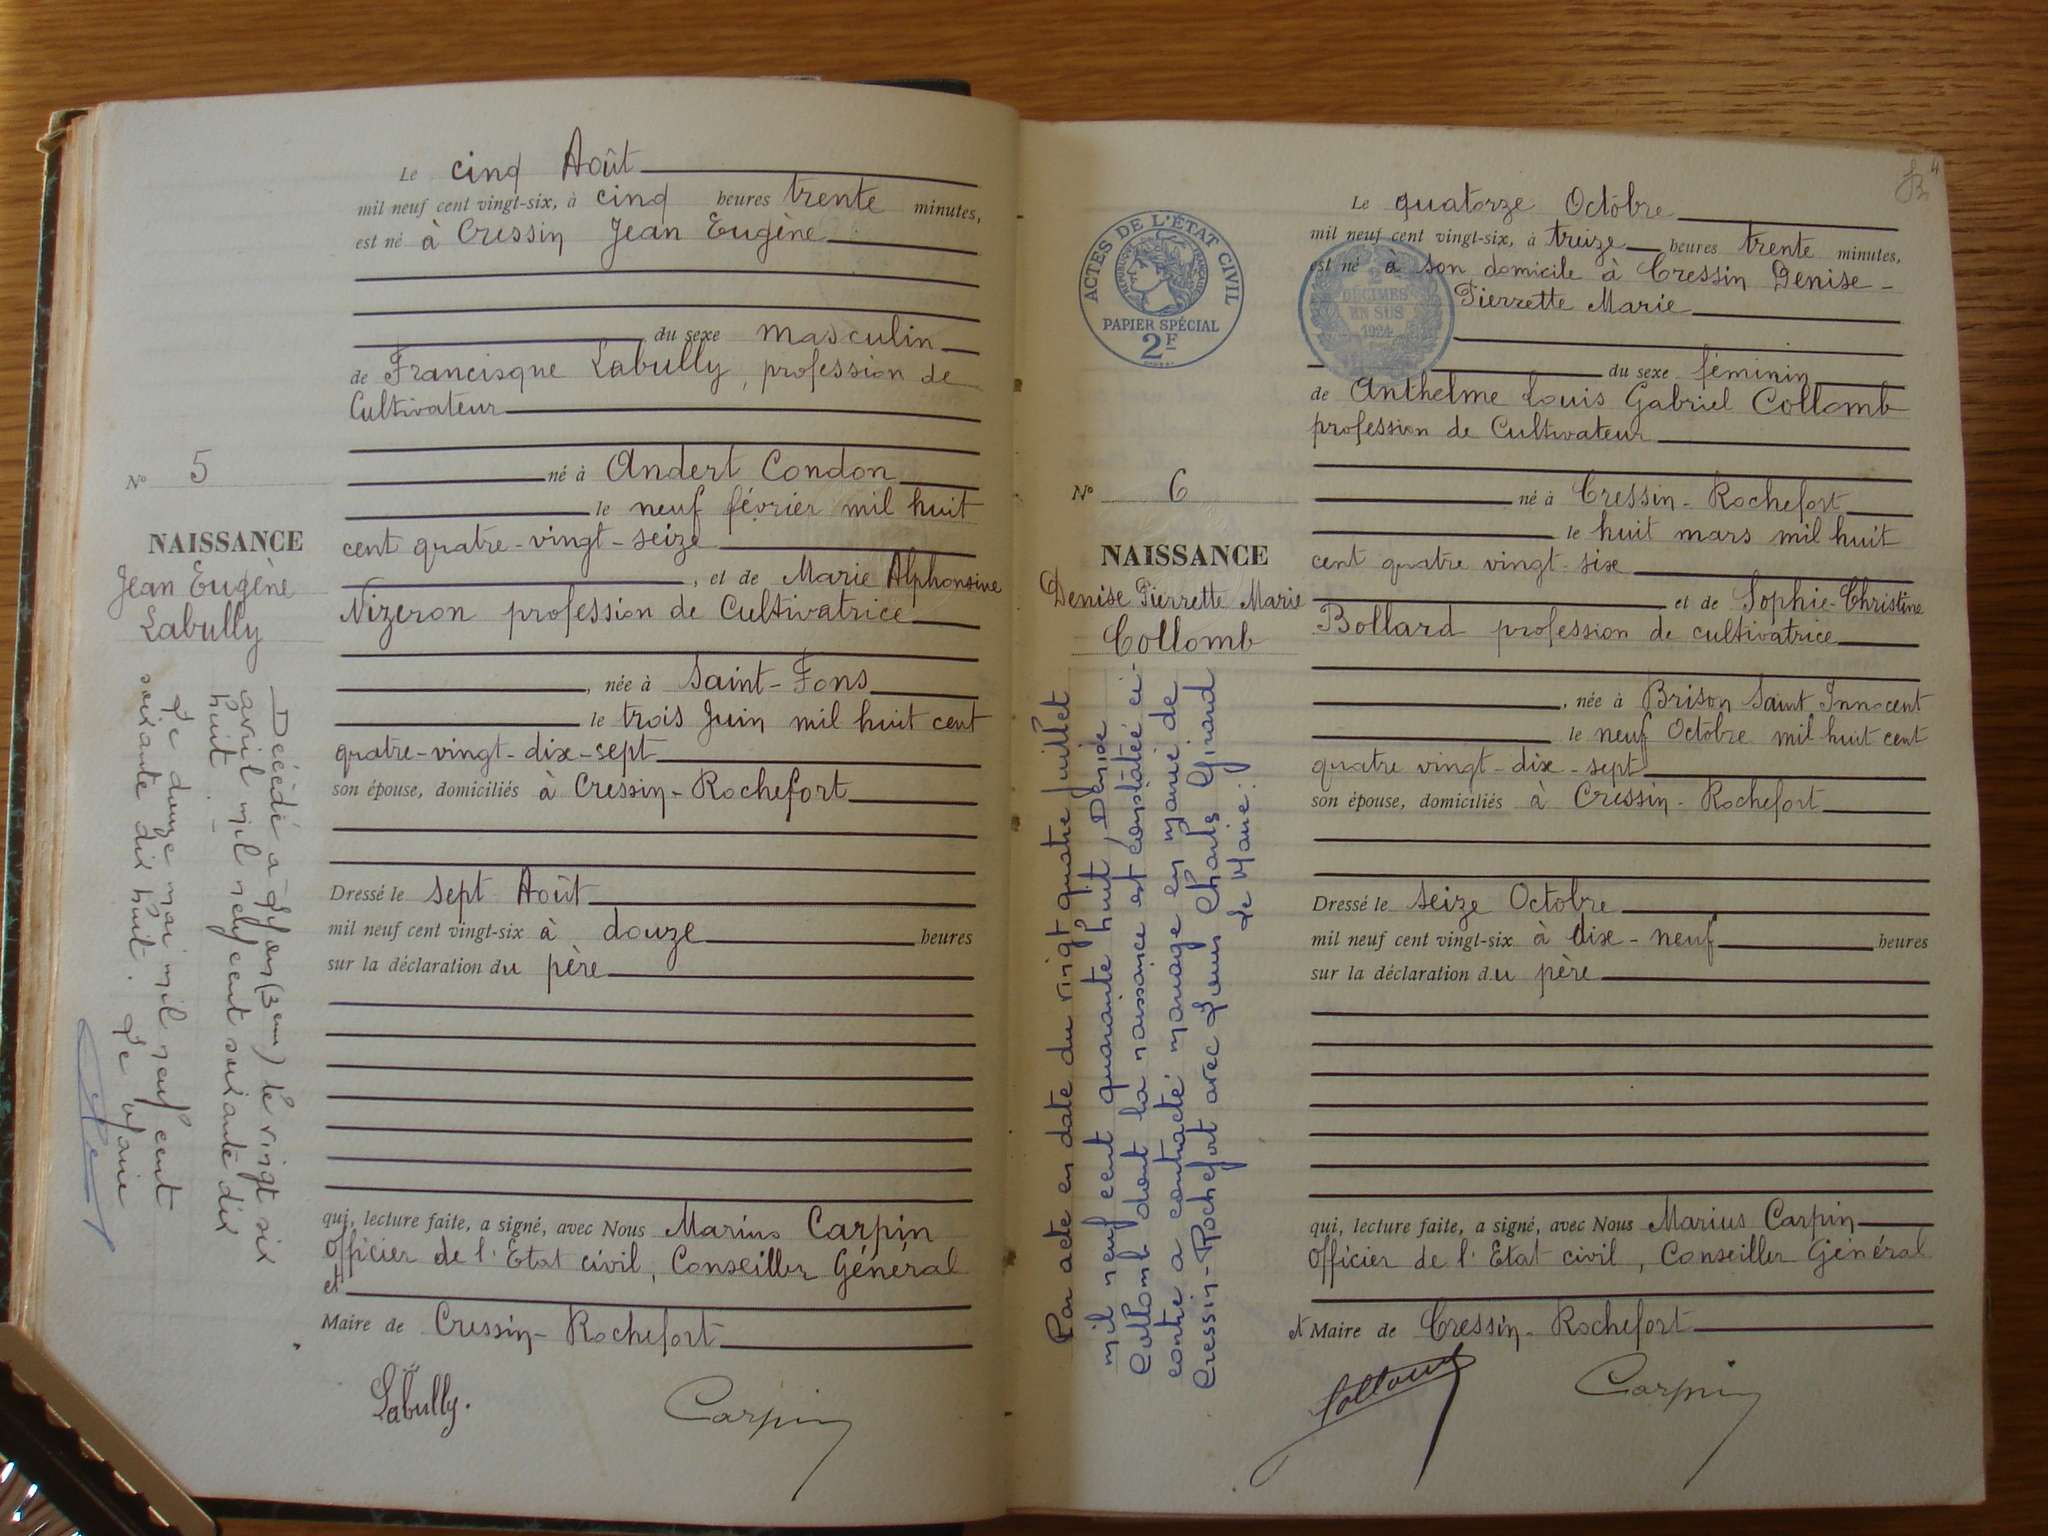 Le cinq Août
mil neuf cent vingt-six, à cinq heures trente minutes,
est né à Cressin Jean Eugène
du sexe masculin
de Francisque Labully, profession de
Cultivateur
né à Andert Condon
le neuf février mil huit
cent quatre-vingt-seize
, et de Marie Alphonsine
Nizeron profession de Cultivatrice
, née à Saint-Fons
le trois Juin mil huit cent
quatre-vingt-dix-sept
son épouse, domiciliés à Cressin-Rochefort
Dressé le sept Août
mil neuf cent vingt-six à douze heures
sur la déclaration du père
qui, lecture faite, a signé, avec Nous Marius Carpin
Officier de l'Etat civil, Conseiller Général
et
Maire de Cressin-Rochefort
Labully.
Carpin
N° 5
NAISSANCE
Jean Eugène
Labully
Décédé à Lyon (3eme) le vingt six
avril mil neuf cent soixante dix
huit.
Le douze mai mil neuf cent
soixante dix huit. Le Maire
4
Le quatorze Octobre
mil neuf cent vingt-six, à treize heures trente minutes,
est né à son domicile à Cressin Denise-
Pierrette Marie
du sexe féminin
de Anthelme Louis Gabriel Collomb
profession de Cultivateur
né à Cressin-Rochefort
le huit mars mil huit
cent quatre vingt-six
et de Sophie-Christine
Bollard profession de cultivatrice
, née à Brison Saint Innocent
le neuf Octobre mil huit cent
quatre vingt-dix-sept
son épouse, domiciliés à Cressin-Rochefort
Dressé le seize Octobre
mil neuf cent vingt-six à dix-neuf heures
sur la déclaration du père
qui, lecture faite, a signé, avec Nous Marius Carpin
Officier de l'Etat civil, Conseiller Général
et Maire de Cressin-Rochefort
Collomb
Carpin
ACTES DE L'ÉTAT CIVIL
RÉPUBLIQUE FRANÇAISE
PAPIER SPÉCIAL
2F
2
DÉCIMES
EN SUS
1924
N° 6
NAISSANCE
Denise Pierrette Marie
Collomb
Par acte en date du vingt quatre juillet
mil neuf cent quarante huit, Denise
Collomb dont la naissance est constatée ci-
contre a contracté mariage en mairie de
Cressin-Rochefort avec Louis Charles Girard
Le Maire: